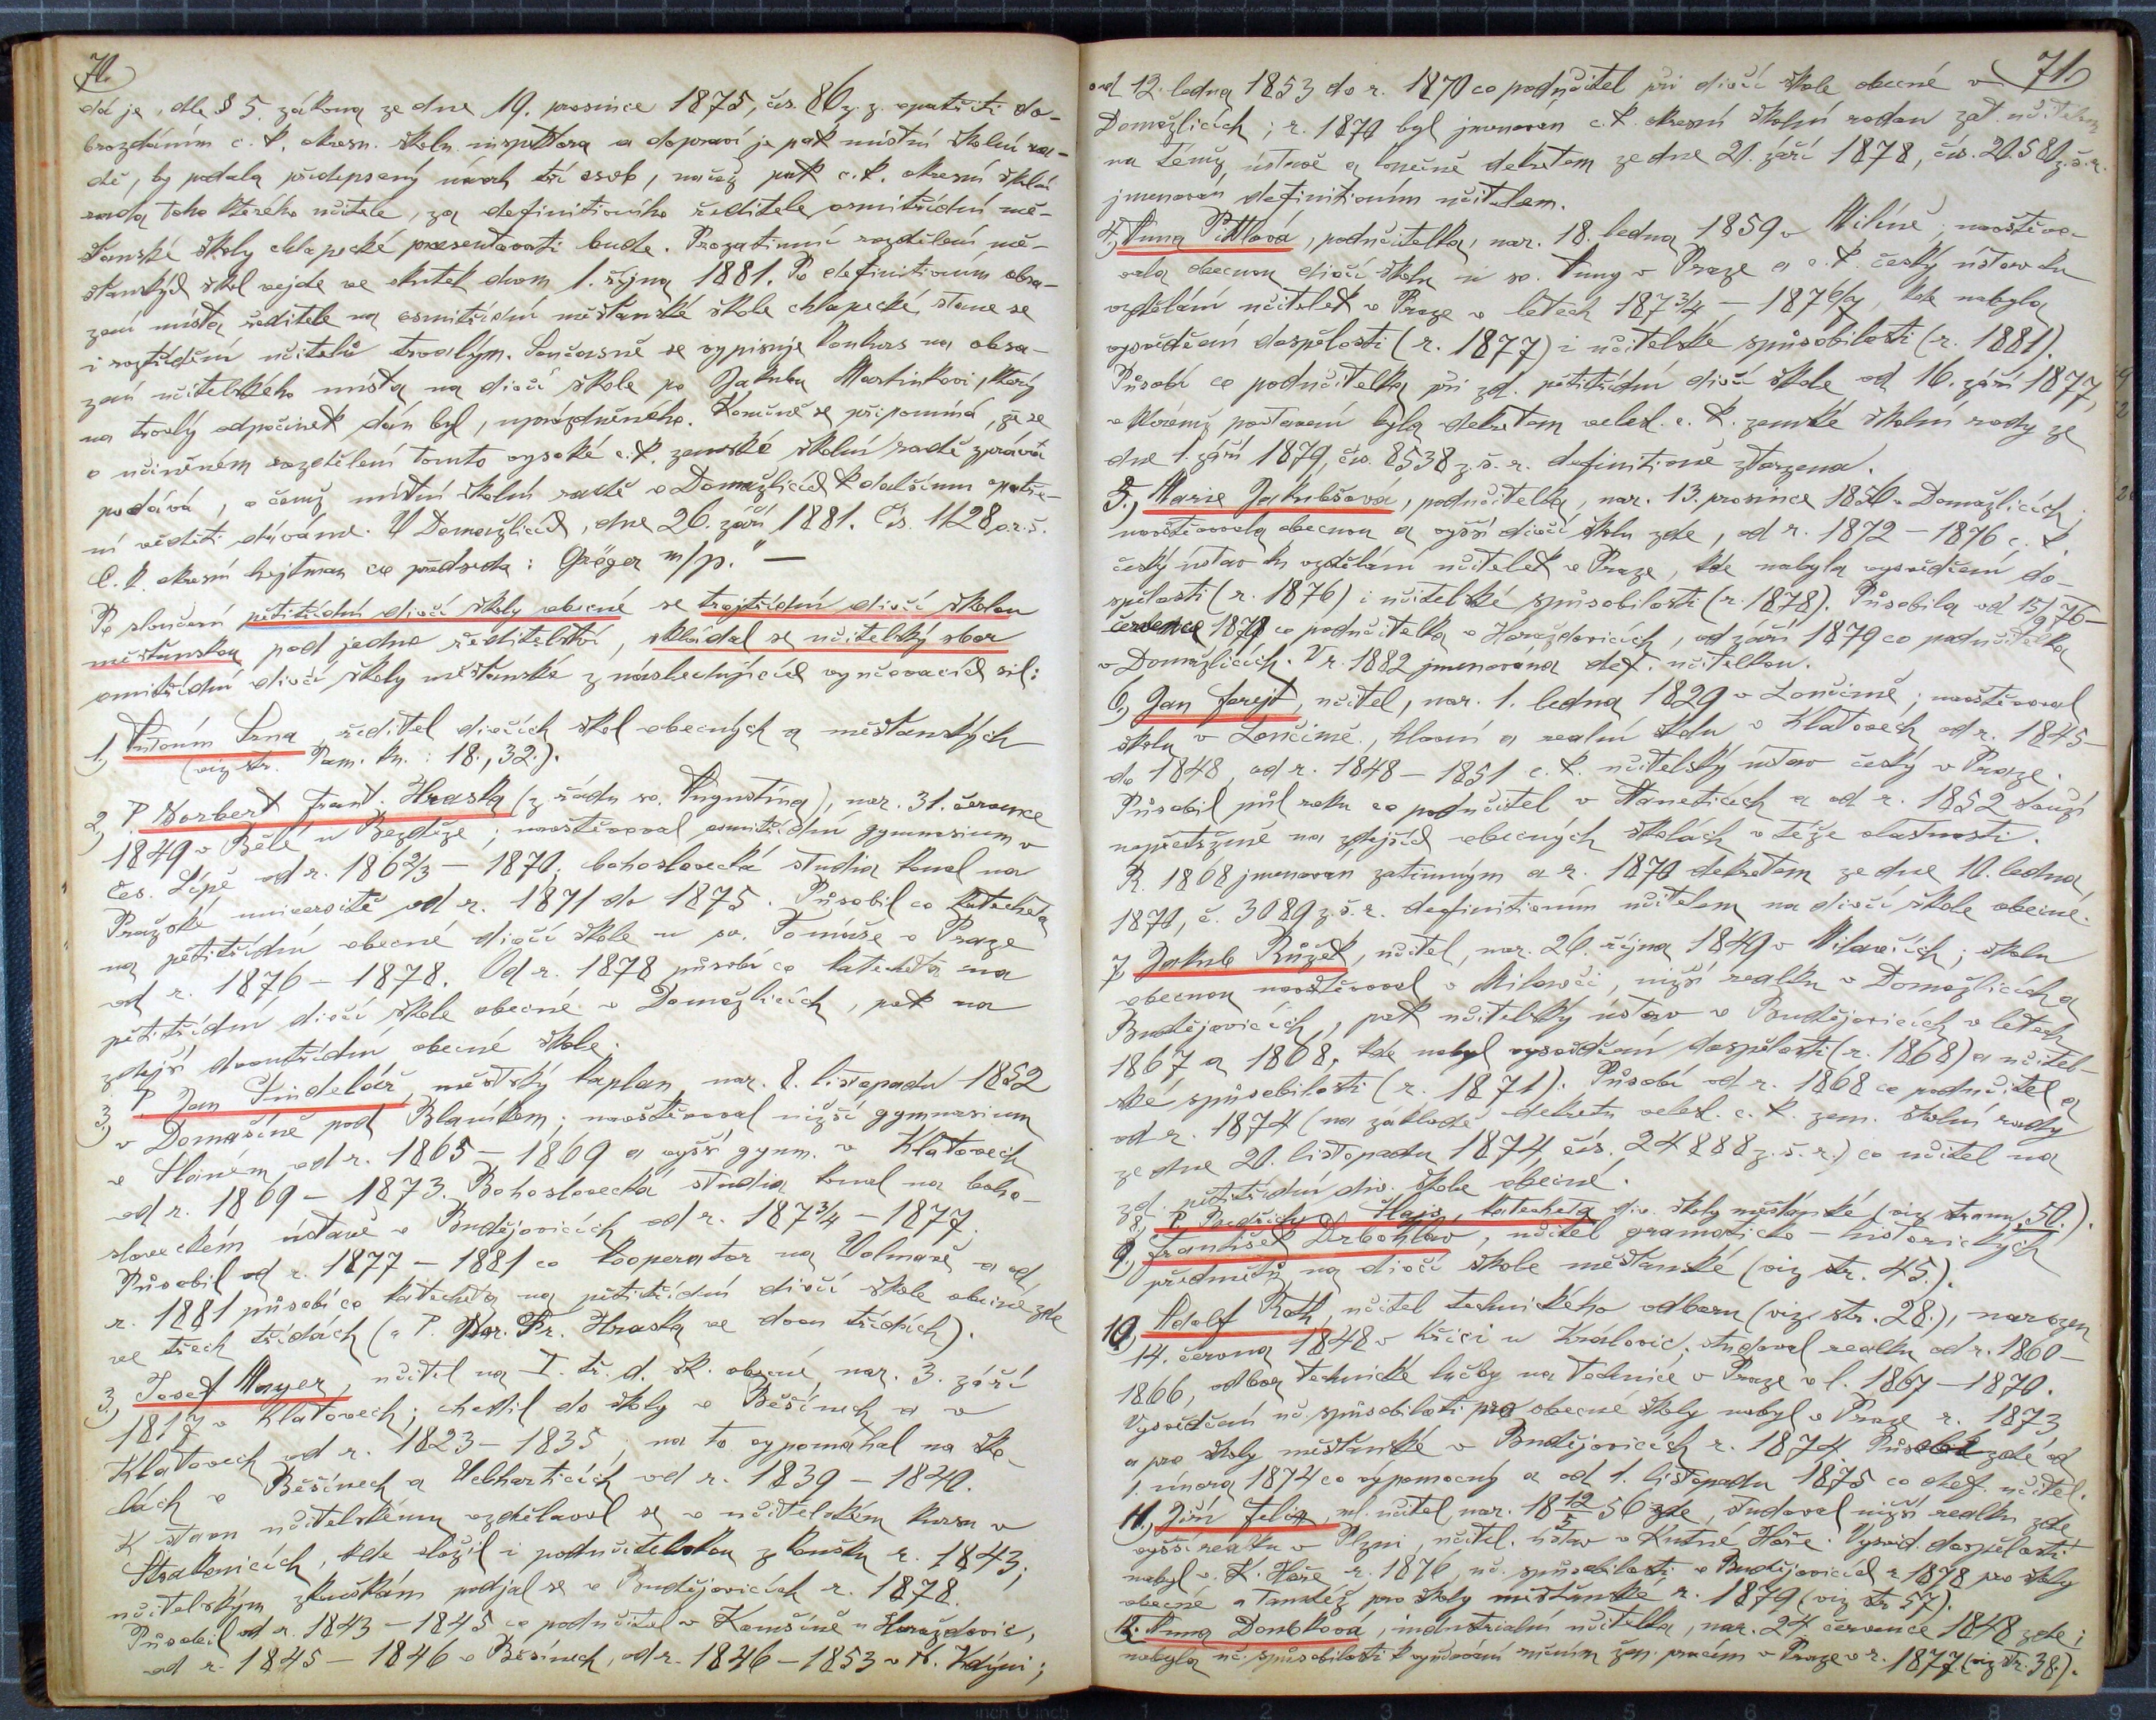 70.
dá je, dle § 5. zákona ze dne 19. prosince 1875, čís. 86 z. z. opatřiti do-
brozdáním c. k. okresn. školn. inspektora a dopraví je pak místní školní ra-
dě, by podala předepsaný návrh tří osob, načež pak c. k. okresní školní
rada toho kterého učitele, za definitivního ředitele osmitřídní mě-
šťanské školy chlapecké praesentovati bude. Prozatimní rozdělení mě-
šťanských škol vejde ve skutek dnem 1. října 1881. Po definitivním obsa-
zení místa ředitele na osmitřídní měšťanské škole chlapecké, stane se
i roztřídění učitelů trvalým. Současně se vypisuje konkurs na obsa-
zení učitelského místa na dívčí škole po Jakubu Martínkovi, který
na trvalý odpočinek dán byl, uprázdněného. Konečně se připomíná, že se
o učiněném rozdělení tomto vysoké c. k. zemské školní radě zpráva
podává, o čemž místní školní radě v Domažlicích k dalšímu opatře-
ní věděti dáváme. V Domažlicích, dne 26. září 1881. Čís. 1128 o. r. š.
C. k. okresní hejtman co předseda: Gröger m/p." —
Po sloučení pětitřídní dívčí školy obecné se trojtřídní dívčí školou
měšťanskou pod jedno ředitelství, skládal se učitelský sbor
osmitřídní dívčí školy měšťanské z následujících vyučovacích sil:
1.) Antonín Srna, ředitel dívčích škol obecných a měšťanských
(viz str. Pam. kn.: 18., 32.).
2.) P. Norbert Frant. Hraska (z řádu sv. Augustina), nar. 31. července
1849 v Bělé u Bezděze; navštěvoval osmitřídní gymnasium v
Čes. Lípě od r. 1862/3 – 1870; bohoslovecká studia konal na
Pražské universitě od r. 1871 do 1875. Působil co katecheta
na pětitřídní obecné dívčí škole u sv. Tomáše v Praze
od r. 1876 – 1878. Od r. 1878 působí co katecheta na
pětitřídní dívčí škole obecné v Domažlicích, pak na
zdejší dvoutřídní obecné škole.
3.) P. Jan Šindelář, městský kaplan, nar. 8. listopadu 1852
v Domašíně pod Blaníkem; navštěvoval nižší gymnasium
v Slaném od r. 1865 – 1869 a vyšší gymn. v Klatovech
od r. 1869 – 1873. Bohoslovecká studia konal na boho-
sloveckém ústavě v Budějovicích od r. 1873/4 – 1877.
Působil od r. 1877 – 1881 co kooperator na Volmavě a od
r. 1881 působí co katecheta na pětitřídní dívčí škole obecné zde
ve třech třídách (a P. Nor. Fr. Hraska ve dvou třídách).
3.) Josef Mayer, učitel na I. tř. d. šk. obecné, nar. 3. září
1817 v Klatovech; chodil do školy v Běšinech a v
Klatovech od r. 1823 – 1835, na to vypomáhal na ško-
lách v Běšinech a od r. 1839 – 1840.
K stavu učitelskému vzdělával se v učitelském kursu v
Strakonicích, kde složil i podučitelskou zkoušku r. 1843;
učitelským zkouškám podjal se v Budějovicích r. 1878.
Působil od r. 1843 – 1845 co podučitel v u Horažďovic,
od r. 1845 – 1846 v Běšinech, od r. 1846 – 1853 v N. Kdýni;
71.
od 12. ledna 1853 do r. 1870 co podučitel při dívčí škole obecné v
Domažlicích; r. 1870 byl jmenován c. k. okresní školní radou zat. učitelem
na témž ústavě a konečně dekretem ze dne 20. září 1878, čís. 20.580 z. š. r.
jmenován definitivním učitelem.
4.) Anna Pittlová, podučitelka, nar. 18. ledna 1859 v Milíně; navštěvo-
vala obecnou dívčí školu u sv. Anny v Praze a c. k. český ústav ku
vzdělání učitelek v Praze v letech 1873/4 – 1876/7, kde nabyla
vysvědčení dospělosti (r. 1877) i učitelské způsobilosti (r. 1881).
Působí co podučitelka při zd. pětitřídní dívčí škole od 16. září 1877,
v kterémž postavení byla dekretem veled. c. k. zemské školní rady ze
dne 1. září 1879, čís. 8538 z. š. r. definitivně stvrzena.
5.) Marie Jakubšová, podučitelka, nar. 13. prosince 1856 v Domažlicích;
navštěvovala obecnou a vyšší dívčí školu zde, od r. 1872 – 1876 c. k.
český ústav ku vzdělání učitelek v Praze, kde nabyla vysvědčení do-
spělosti (r. 1876) i učitelské způsobilosti (r. 1878). Působila od 15/9 76 –
července 1879 co podučitelka v Horažďovicích, od září 1879 co podučitelka
v Domažlicích. V r. 1882 jmenována def. učitelkou.
6.) Jan Forejt, učitel, nar. 1. ledna 1829 v Loučimě; navštěvoval
školu v Loučimě, hlavní a realní školu v Klatovech od r. 1845 –
do 1848, od r. 1848 – 1851 c. k. učitelský ústav český v Praze.
Působil půl roku co podučitel v Haneticích a od r. 1852 slouží
nepřetrženě na zdejších obecných školách v téže vlastnosti.
R. 1868 jmenován zatimným a r. 1870 dekretem ze dne 10. ledna
1870, č. 3089 z. š. r. definitivním učitelem na dívčí škole obecné.
7.) Jakub Růžek, učitel, nar. 26. října 1849 v Milavčích; školu
obecnou navštěvoval v Milavči, nižší realku v Domažlicích a
Budějovicích, pak učitelský ústav v Budějovicích v letech
1867 a 1868, kde nabyl vysvědčení dospělosti (r. 1868) a učitel-
ské způsobilosti (r. 1871). Působí od r. 1868 co podučitel a
od r. 1874 (na základě dekretu veled. c. k. zem. školní rady
ze dne 20. listopadu 1874, čís. 24888 z. š. r.) co učitel na
zd. pětitřídní dív. škole obecné.
8.) P. Bedřich Hajs, katecheta dív. školy měšťanské (viz stranu 50.).
9.) František Drbohlav, učitel gramaticko – historických
předmětů na dívčí škole měšťanské (viz str. 45.).
10.) Adolf Roth, učitel technického odboru (viz str. 28.), narozen
14. června 1848 v Křici u Kralovic; studoval realku od r. 1860 –
1866, odbor technické lučby na technice v Praze v l. 1867 – 1870.
Vysvědčení uč. způsobilosti pro obecné školy nabyl v Praze r. 1873
a pro školy měšťanské v Budějovicích r. 1874. Působí zde od
1. února 1874 co výpomocný a od 1. listopadu 1875 co def. učitel.
11.) Jiří Felix, ml. učitel, nar. 18 12/5 56 zde, studoval nižší realku zde,
vyšší realku v Plzni, učitel. ústav v Kutné Hoře. Vysvěd. dospělosti
nabyl v K. Hoře r. 1876, uč. způsobilosti v Budějovicích r. 1878 pro školy
obecné a tamtéž pro školy měšťanské r. 1879 (viz str. 57).
12. Anna Doubková, industrialní učitelka, nar. 24. července 1848 zde;
nabyla uč. způsobilosti k vyučování ručním žen. pracím v Praze v r. 1877 (viz str. 38.).